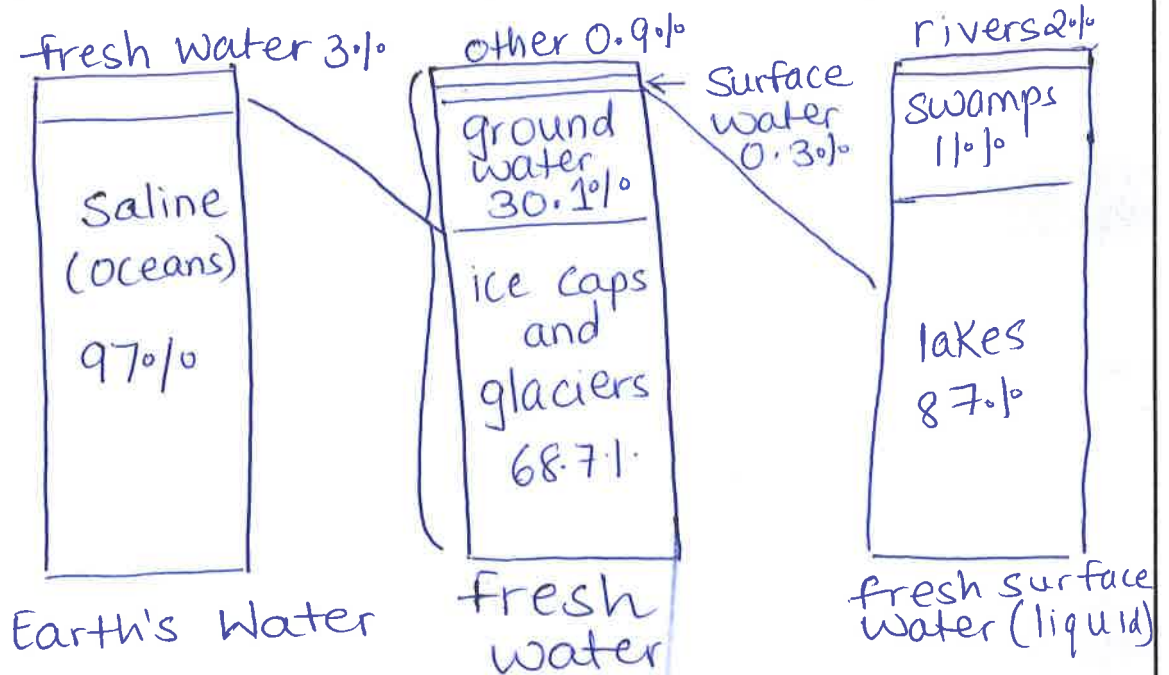 fresh water 3%
saline
(oceans)
97%
Earth's Water
other 0.9%
surface
water
0.3%
ground
water
30.1%
ice caps
and
glaciers
68.7%
fresh
water
rivers 2%
swamps
11%
lakes
87%
fresh surface
water (liquid)